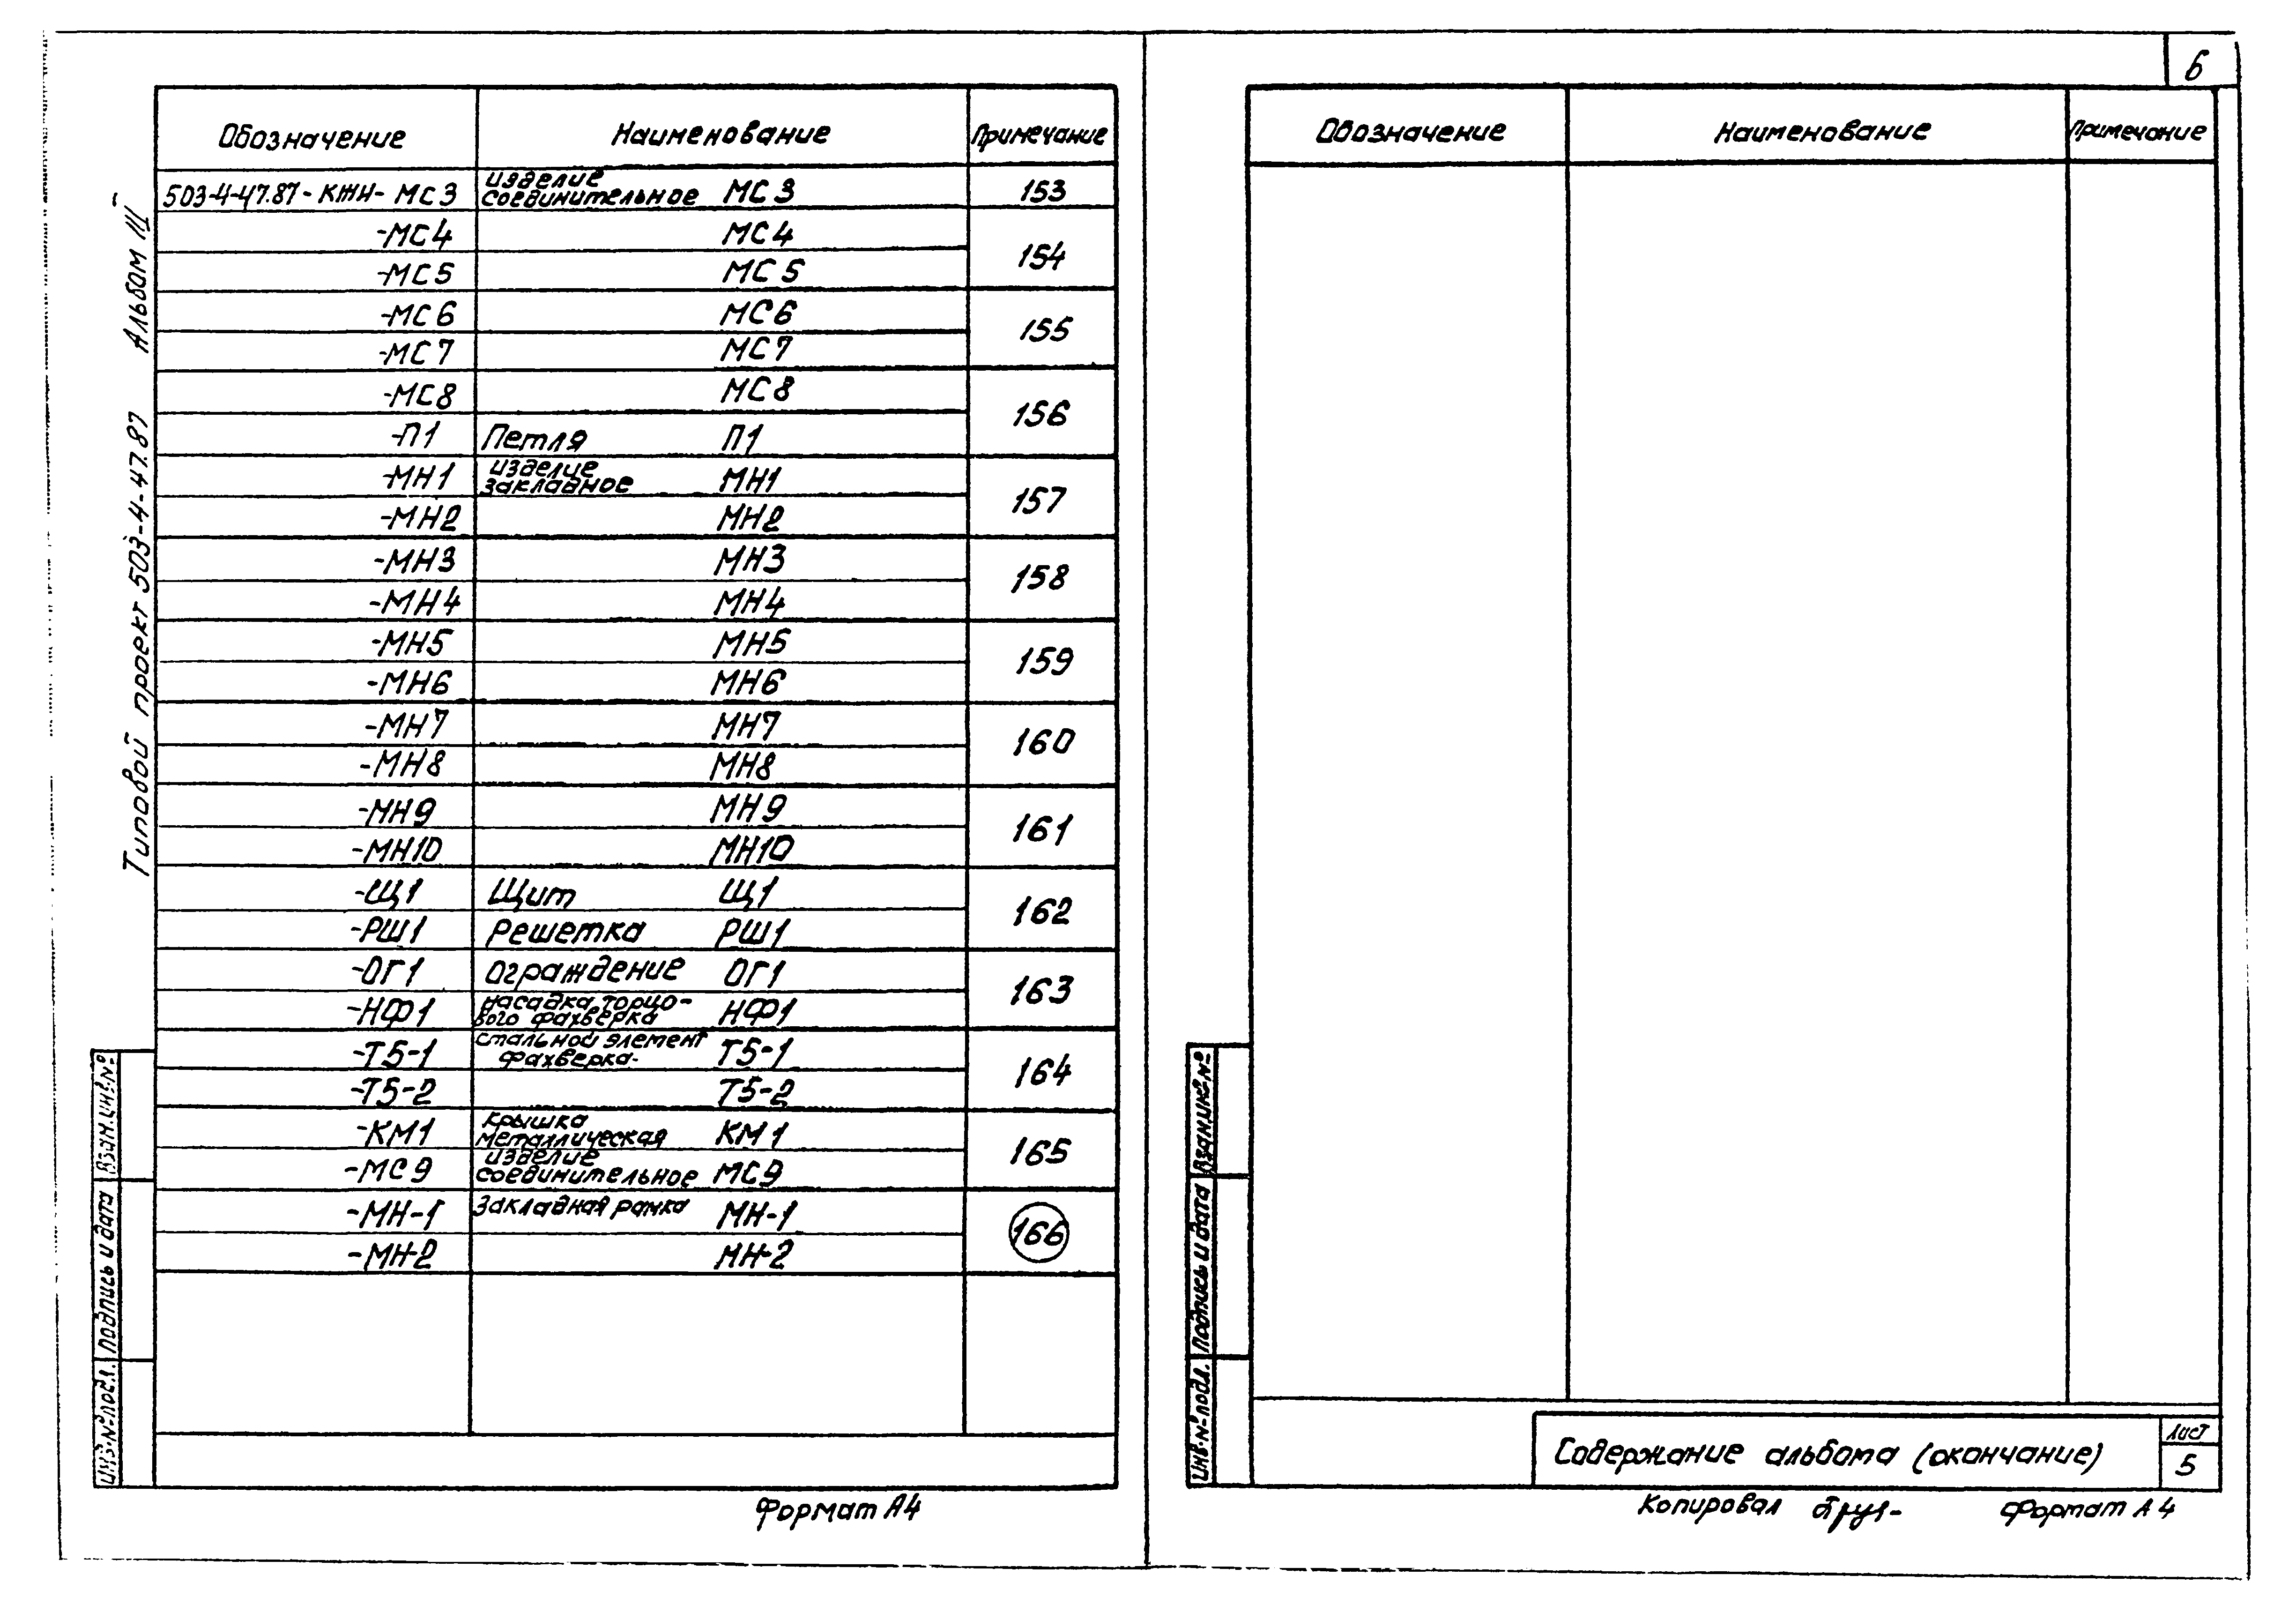 6
Типовой проект 503-4-47.87 Альбом III
Обозначение Наименование Примечание
503-4-47.87-КЖИ-МС3 изделие соединительное МС3 153
-МС4 МС4 154
-МС5 МС5
-МС6 МС6 155
-МС7 МС7
-МС8 МС8 156
-П1 Петля П1
-МН1 изделие закладное МН1 157
-МН2 МН2
-МН3 МН3 158
-МН4 МН4
-МН5 МН5 159
-МН6 МН6
-МН7 МН7 160
-МН8 МН8
-МН9 МН9 161
-МН10 МН10
-Щ1 Щит Щ1 162
-РШ1 Решетка РШ1
-ОГ1 Ограждение ОГ1 163
-НФ1 насадка торцо-вого фахверка НФ1
-Т5-1 стальной элемент фахверка Т5-1 164
-Т5-2 Т5-2
-КМ1 крышка металлическая КМ1 165
-МС9 изделие соединительное МС9
-МН-1 Закладная рамка МН-1 166
-МН-2 МН-2
Инв.№подл. Подпись и дата Взам.инв.№
Формат А4
Обозначение Наименование Примечание
Инв.№подл. Подпись и дата Взам.инв.№
Содержание альбома (окончание)
Лист
5
Копировал Формат А4